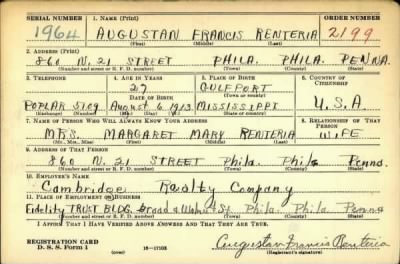 SERIAL NUMBER 1. NAME (Print) ORDER NUMBER
1964 AUGUSTAN FRANCIS RENTERIA 2199
(First) (Middle) (Last)
2. ADDRESS (Print)
860 N. 21 STREET PHILA. PHILA. PENNA.
(Number and street or R. F. D. number) (Town) (County) (State)
3. TELEPHONE 4. AGE IN YEARS 5. PLACE OF BIRTH 6. COUNTRY OF CITIZENSHIP
27 GULFPORT
DATE OF BIRTH (Town or county)
POPLAR 5109 August 6, 1913 MISSISSIPPI U.S.A.
(Exchange) (Number) (Mo.) (Day) (Yr.) (State or country)
7. NAME OF PERSON WHO WILL ALWAYS KNOW YOUR ADDRESS 8. RELATIONSHIP OF THAT PERSON
MRS. MARGARET MARY RENTERIA WIFE
(Mr., Mrs., Miss) (First) (Middle) (Last)
9. ADDRESS OF THAT PERSON
860 N. 21 STREET Phila. Phila Penna.
(Number and street or R. F. D. number) (Town) (County) (State)
10. EMPLOYER'S NAME
Cambridge Realty Company
11. PLACE OF EMPLOYMENT OR BUSINESS
Fidelity TRUST BLDG. Broad & Walnut St. Phila. Phila Penna
(Number and street or R. F. D. number) (Town) (County) (State)
I AFFIRM THAT I HAVE VERIFIED ABOVE ANSWERS AND THAT THEY ARE TRUE.
REGISTRATION CARD
D. S. S. Form 1 (over) 16—17105 Augustan Francis Renteria
(Registrant's signature)